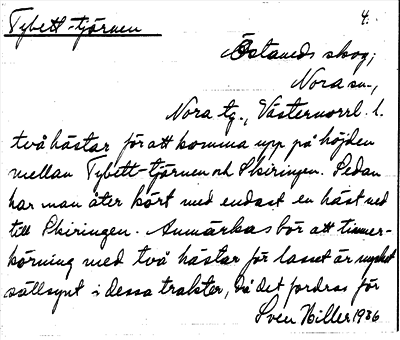 Tybett-tjärnen
4.
Östaneds skog,
Nora sn.,
Nora tg., Västernorrl. l.
två hästar för att komma upp på höjden
mellan Tybett-tjärnen och Skiringen. Sedan
har man åter kört med endast en häst ned
till Skiringen. Anmärkas bör att timmer-
körning med två hästar för lasset är mycket
sällsynt i dessa trakter, då det fordras för
Sven Hiller 1936